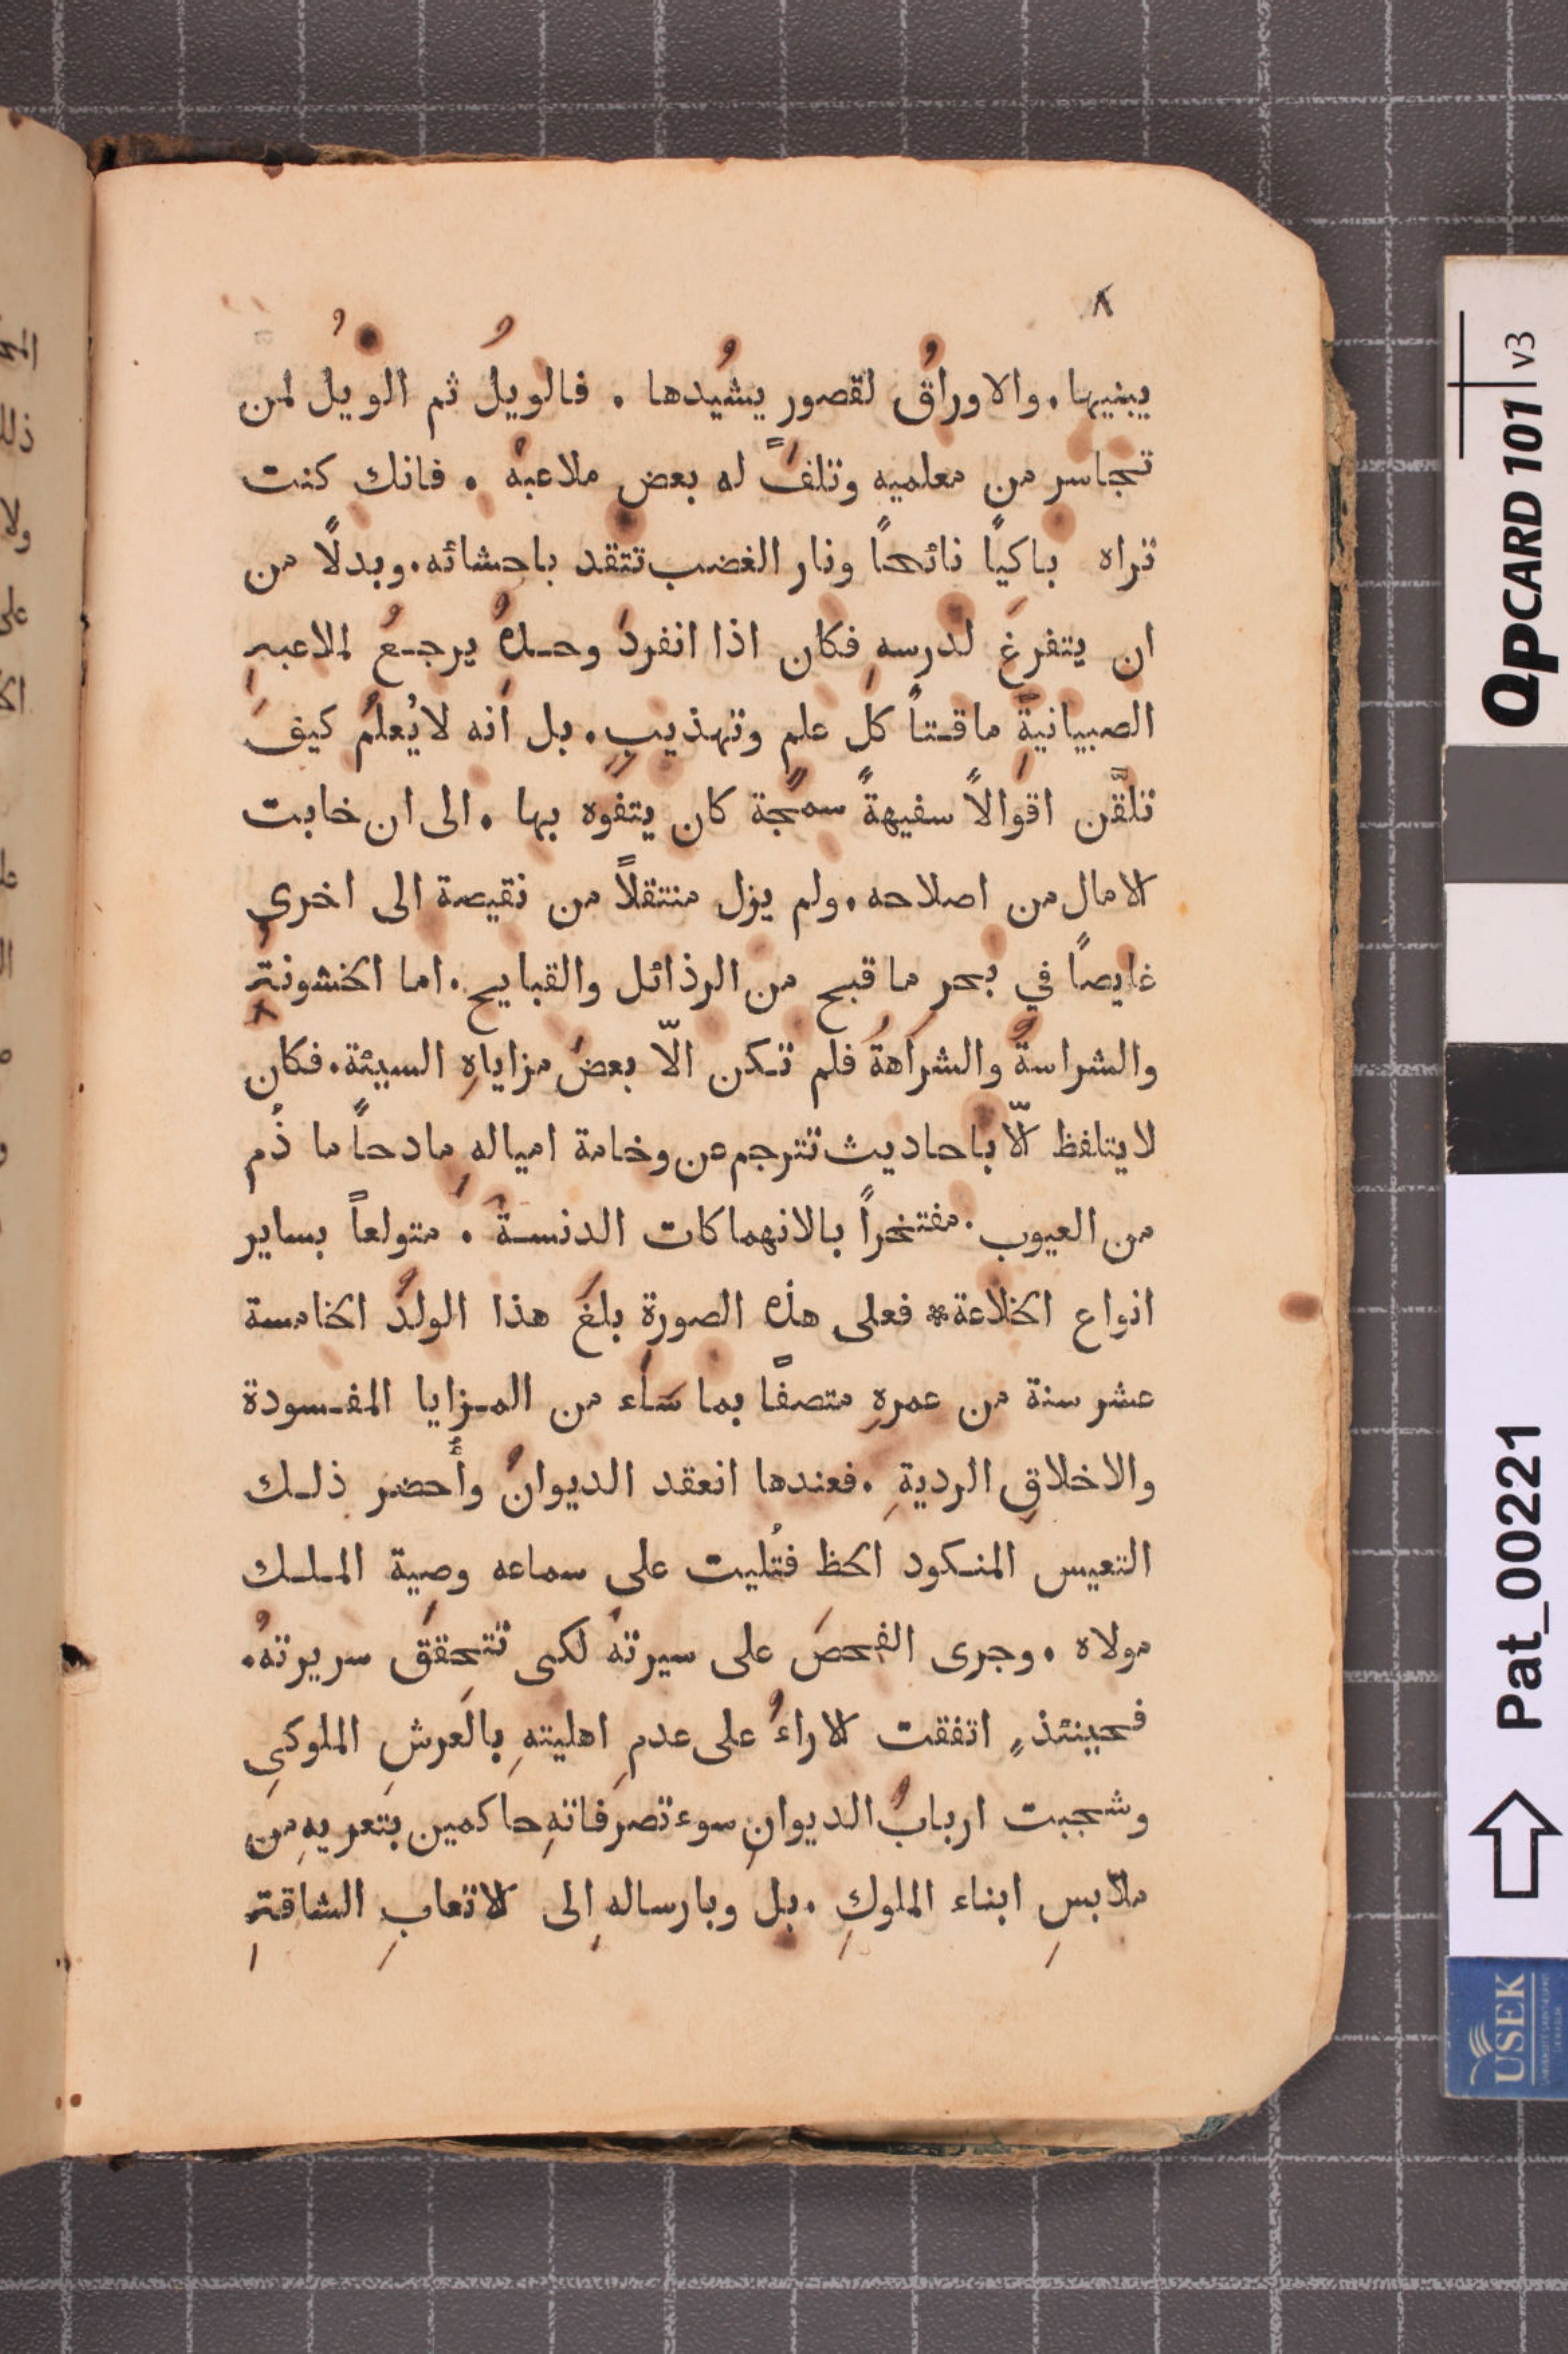 ٨
يبنيها. والاوراقُ لقصور يشيُدها . فالويلُ ثم الويلُ لمن
تجاسر من معلميه وتلفَّ له بعض ملاعبهُ . فانك كنت
تراه باكيًا نائحاً ونار الغضب تتقد باحشائه. وبدلًا من
ان يتفرغَ لدرسهِ فكان اذا انفردَ وحدهُ يرجعُ لملاعبهِ
الصبيانيةِ ماقتاً كلَ علمٍ وتهذيبٍ. بل انه لايُعلمُ كيفَ
تلقَّن اقوالاً سفيهةً سمجةً كان يتفوه بها . الى ان خابت
الامال من اصلاحه. ولم يزل منتقلاً من نقيصة الى اخرى
غايصاً في بحر ما قبح من الرذائل والقبايح. اما الخشونةُ
والشراسةُ والشراهةُ فلم تكن الّا بعضُ مزاياهِ السيئة. فكان
لايتلفظ الّا باحاديث تترجم عن وخامة اميالهِ مادحاً ما ذُم
من العيوب. مفتخراً بالانهماكات الدنسة . متولعاً بساير
انواع الخلاعة* فعلى هذه الصورة بلغَ هذا الولدُ الخامسة
عشر سنة من عمرهِ متصفاً بما سَاء من المزايا المفسودة
والاخلاقِ الرديةِ . فعندها انعقد الديوانُ وأُحضر ذلك
التعيس المنكود الحظ فتُليت على سماعه وصية الملك
مولاه . وجرى الفحصَ على سيرتهُ لكى تتحققَ سريرتهُ.
فحينئذٍ اتفقت الاراءُ على عدمِ اهليتهِ بالعرشِ الملوكىِ
وشجبت اربابُ الديوانِ سوء تصرفاتهِ حاكمين بتعريهِ من
ملابسِ ابناء الملوكِ . بل وبارسالهِ الى الاتعابِ الشاقةِ
QPCARD 101 v3
Pat_00221
USEK